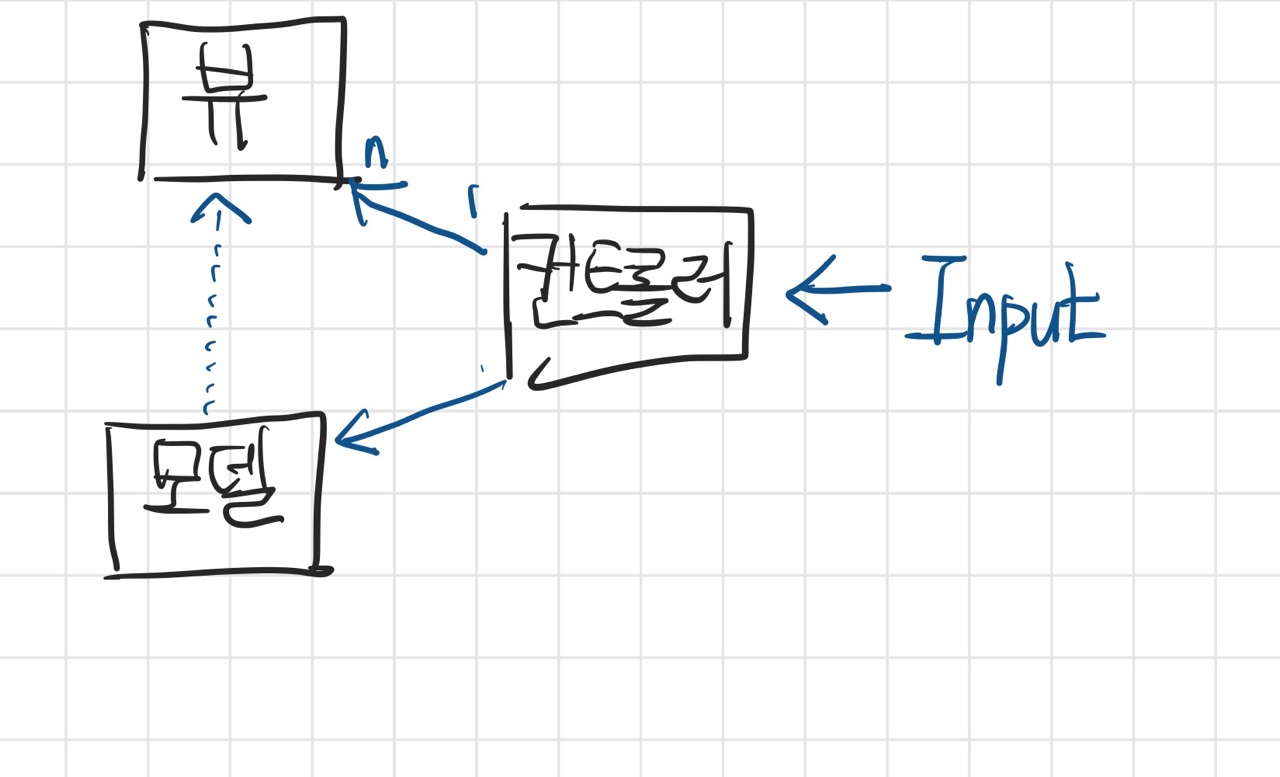 뷰
n
1
컨트롤러
Input
모델